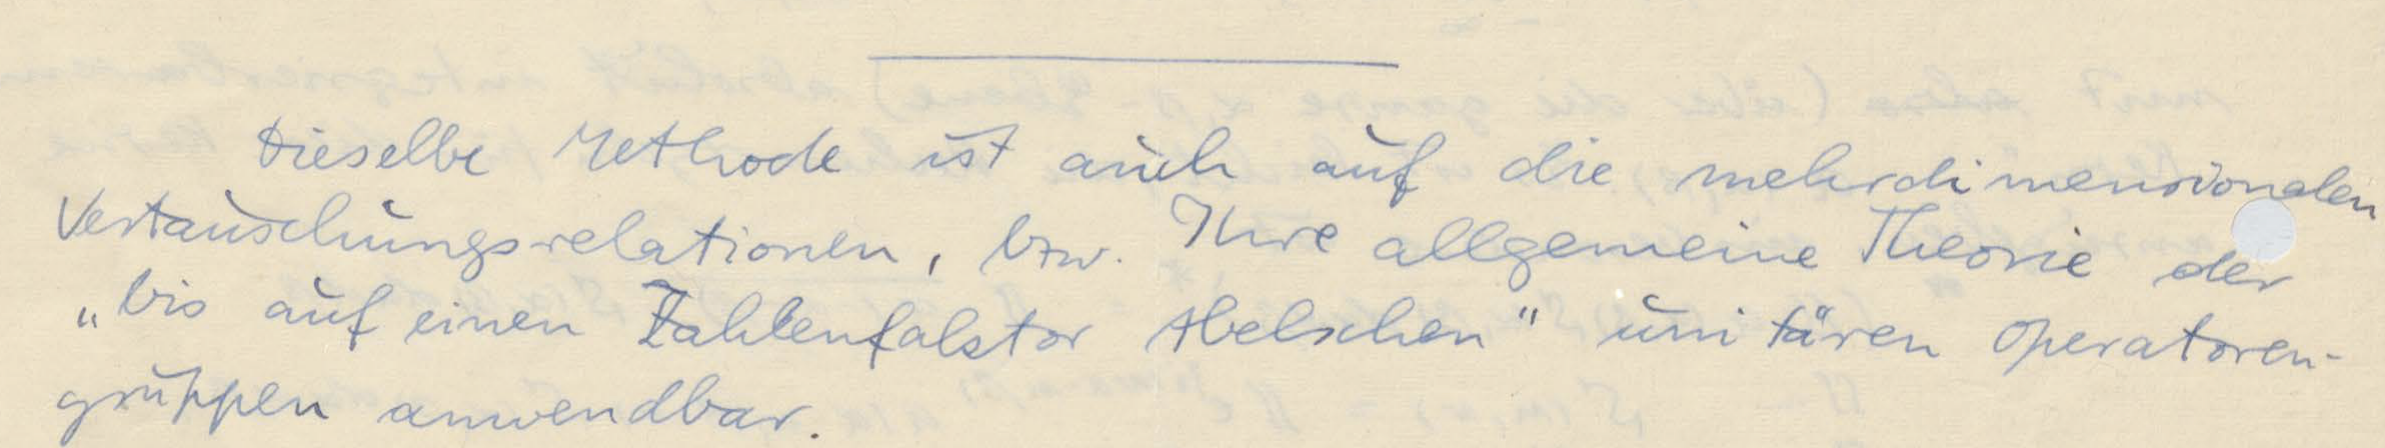 Dieselbe Methode ist auch auf die mehrdimensionalen
Vertauschungsrelationen, bzw. Ihre allgemeine Theorie der
„bis auf einen Zahlenfaktor Abelschen" unitären Operatoren-
gruppen anwendbar.